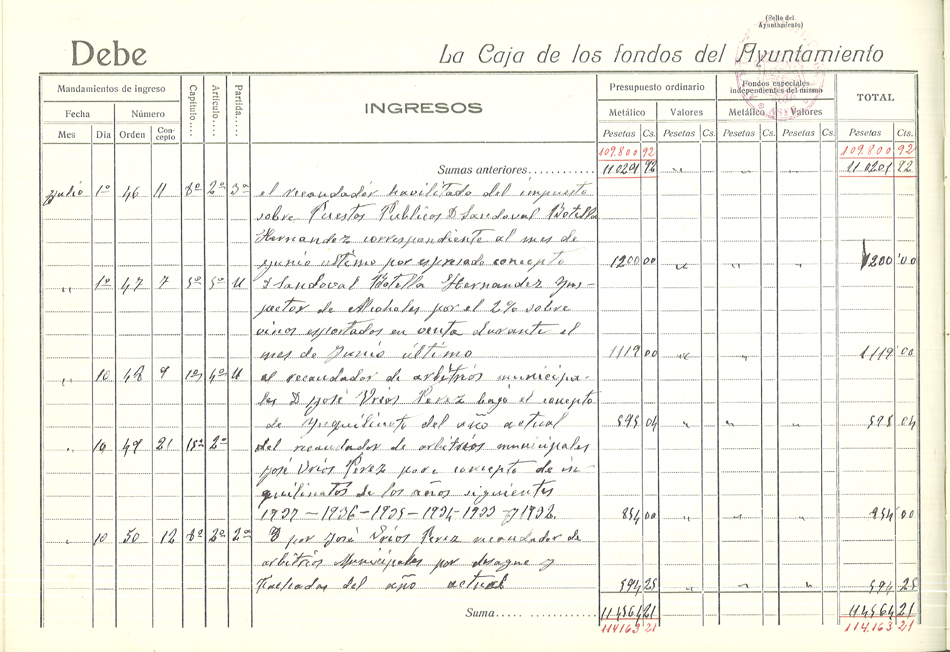 (Sello del
Ayuntamiento)
Debe
La Caja de los fondos del Ayuntamiento
Mandamientos de ingreso
Capítulo....
Artículo....
Partida.....
INGRESOS
Presupuesto ordinario
Fondos especiales
independientes del mismo
TOTAL
Fecha Número
Metálico Valores Metálico Valores
Mes Día Orden Concepto
Pesetas Cs. Pesetas Cs. Pesetas Cs. Pesetas Cs. Pesetas Cts.
109.800 92 109.800 92
Sumas anteriores 110201 92 " " 110201 92
Julio 1º 46 11 8º 2º 3ª el recaudador havilitado del impuesto
sobre Puestos Publicos D Sandoval Botella
Hernandez correspondiente al mes de
Junio ultimo por espresado concepto 1200 00 " " " 1200 00
" 1º 47 7 5º 5º U D Sandoval Botella Hernandez Yns-
pector de Alcoholes por el 2% sobre
vinos esportados en venta durante el
mes de Junio último 1119 00 " " " 1119 00
" 10 48 9 4º U el recaudador de arbitrios municipa-
les D José Vrios Perez bajo el concepto
de Ynquilinato del año actual 595 04 " " " 595 04
" 10 49 21 15º 2º del recaudador de arbitrios municipales
José Vrios Pérez por concepto de in-
quilinatos de los años siguientes
1937 - 1936 - 1935 - 1934 - 1933 y 1932. 854 00 " " " 854 00
" 10 50 12 8º 2º 2ª D por José Vrios Perez recaudador de
arbitrios Municipales por desague y
del año actual 594 25 " " " 594 25
Suma 114564 21 114564 21
114163 21 114.163 21